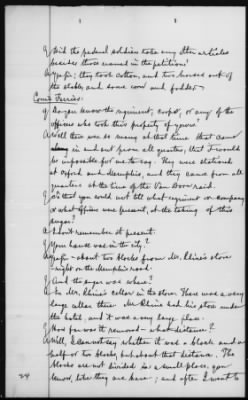 Q Did the federal soldiers take any other articles
besides those named in the petition?
A Yessir; they took cotton, and two horses out of
the stable, and some corn and fodder.
Com'r Ferriss:
Q Do you know the regiment, corps, or any of the
officers who took this property of yours?
A Well there was so many at that time that came
in and out from all quarters, that it would
be impossible for me to say. They were stationed
at Oxford and Memphis, and they came from all
quarters at the time of the Van Dorn raid.
Q So that you could not tell what regiment or company
or what officers was present, at the taking of this
sugar?
A I don't remember at present.
Q Your house was in the city?
A Yessir - about two blocks from Mr. store
right on the Memphis road.
Q And the sugar was where?
A In Mr. cellar in the store. There was a very
large cellar there. Mr. had his store under
the hotel, and it was a very large place.
Q How far was it removed - what distance?
A Well, I can not say whether it was a block and a
half or two blocks, but about that distance. The
blocks are not divided in a small place, you
know, like they are here; and after I went to
24